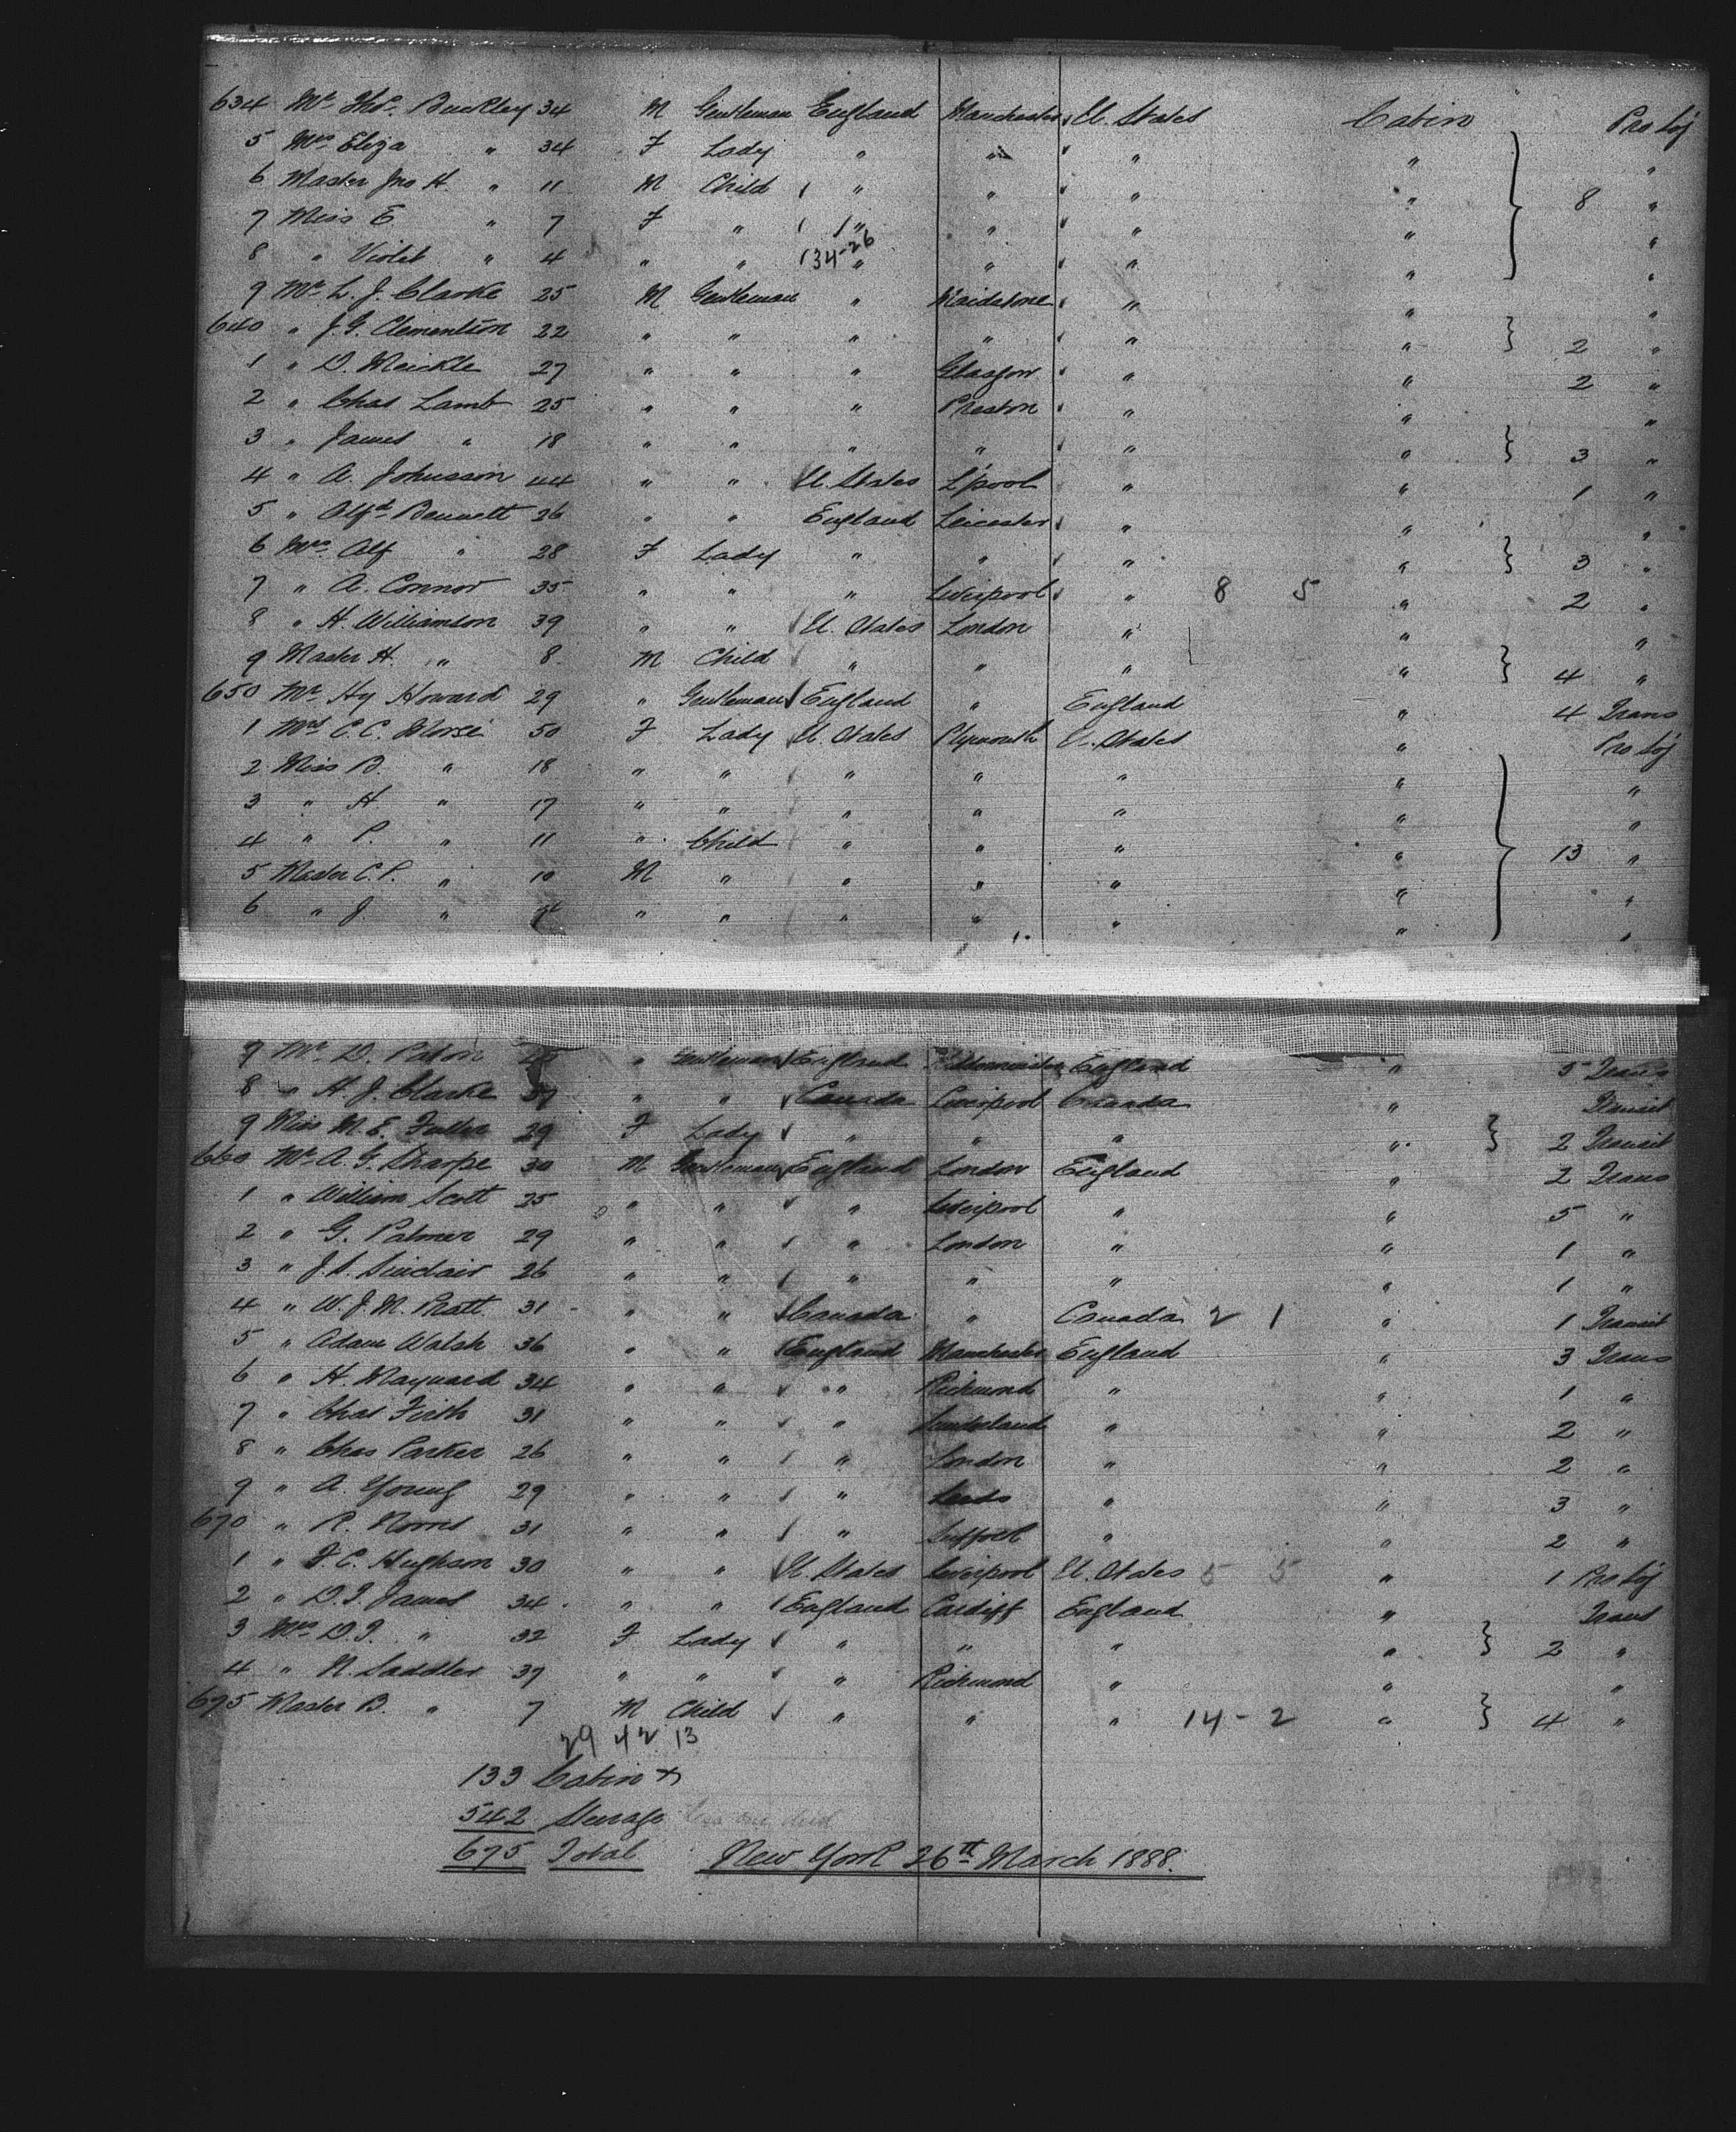 634 Mr Thos. Buckley 34 M Gentleman England Manchester U. States Cabin Pro Soj
5 Mrs Eliza " 34 F Lady " " " " "
6 Master Jno H. " 11 M Child " " " " 8 "
7 Miss E " 7 F " " " " " "
8 " Violet " 4 " " 134-26 " " " " "
9 Mr L. J. Clarke 25 M Gentleman " Maidstone " " "
640 " J. G. Clementson 22 " " " " " " 2 "
1 " D. Meickle 27 " " " Glasgow " " 2 "
2 " Chas Lamb 25 " " " Preston " " "
3 " James " 18 " " " " " " 3 "
4 " A. Johnson 44 " " U. States L'pool " " 1 "
5 " Alfd Bennett 26 " " England Leicester " " "
6 Mrs Alf " 28 F Lady " " " " 3 "
7 " A. Connor 35 " " " Liverpool " 8 5 " 2 "
8 " H. Williamson 39 " " U. States London " " "
9 Master H. " 8 M Child " " " " 4 "
650 Mr Hy Howard 29 " Gentleman England " England " 4 Trans
1 Mrs C. C. 50 F Lady U. States Plymouth U. States " Pro Soj
2 Miss B. " 18 " " " " " " "
3 " H " 17 " " " " " " "
4 " P. " 11 " Child " " " " 13 "
5 Master C. P. " 10 M " " " " " "
6 " J " " " " " " " "
Mr D. Paton " Gentleman England Kidderminster England " 5 Trans
8 " H. J. Clarke " " Canada Liverpool Canada " Transit
9 Miss M. E. Fuller 29 F Lady " " " " 2 Transit
660 Mr A. G. Tharpe 30 M Gentleman England London England " 2 Trans
1 " William Scott 25 " " " Liverpool " " 5 "
2 " G. Palmer 29 " " " London " " 1 "
3 " J. S. Sinclair 26 " " " " " " 1 "
4 " W. J. M. Pratt 31 " " Canada " Canada 2 1 " 1 Transit
5 " Adam Walsh 36 " " England Manchester England " 3 Trans
6 " H. Maynard 34 " " " Richmond " " 1 "
7 " Chas Firth 31 " " " Sunderland " " 2 "
8 " Chas Parker 26 " " " London " " 2 "
9 " A. Young 29 " " " Leeds " " 3 "
670 " R. Norris 31 " " " Suffolk " " 2 "
1 " F. C. Hughson 30 " " U. States Liverpool U. States 5 5 " 1 Pro Soj
2 " D. T. James 34 " " England Cardiff England " Trans
3 Mrs D. T. " 32 F Lady " " " " 2 "
4 " N. Saddler 39 " " " Richmond " " "
675 Master B. " 7 M Child " " " 14-2 " 4 "
29 42 13
133 Cabin
542 Steerage
675 Total New York 26th March 1888.